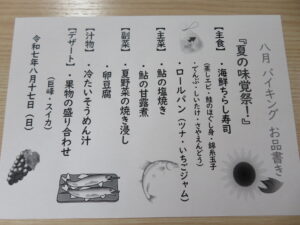 八月 バイキング お品書き
『夏の味覚祭!』
【主食】・海鮮ちらし寿司
(蒸しエビ・鮭のほぐし身・錦糸玉子
・でんぶ・しいたけ・さやえんどう)
・ロールパン(ツナ・いちごジャム)
【主菜】・鮎の塩焼き
・鮎の甘露煮
【副菜】・夏野菜の焼き浸し
・卵豆腐
【汁物】・冷たいそうめん汁
【デザート】・果物の盛り合わせ
(巨峰・スイカ)
令和七年八月十七日(日)